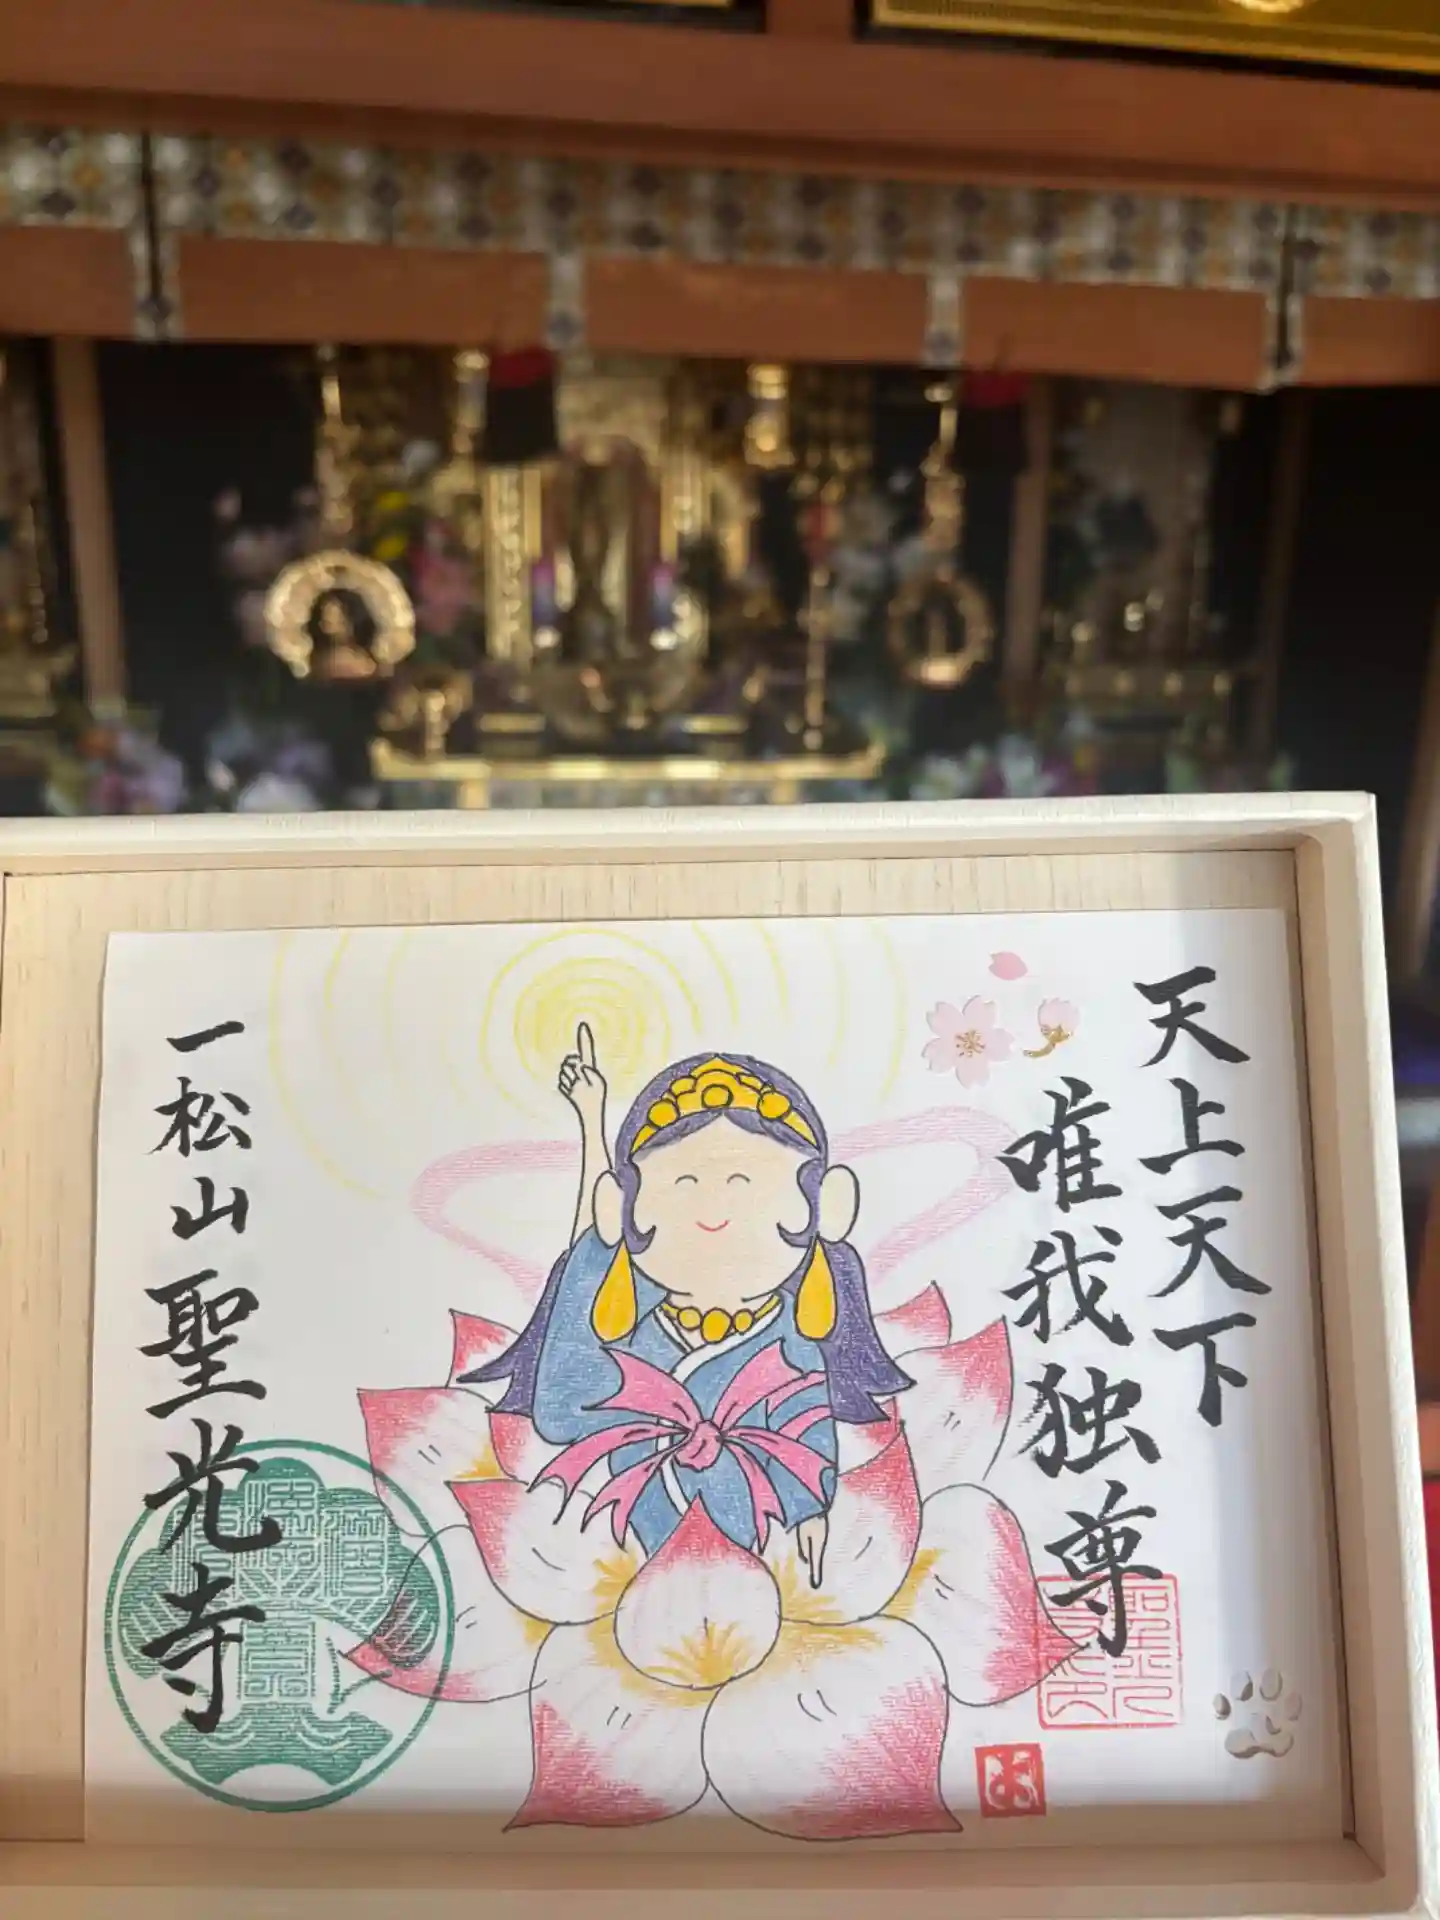 天上天下
唯我独尊
一松山聖光寺